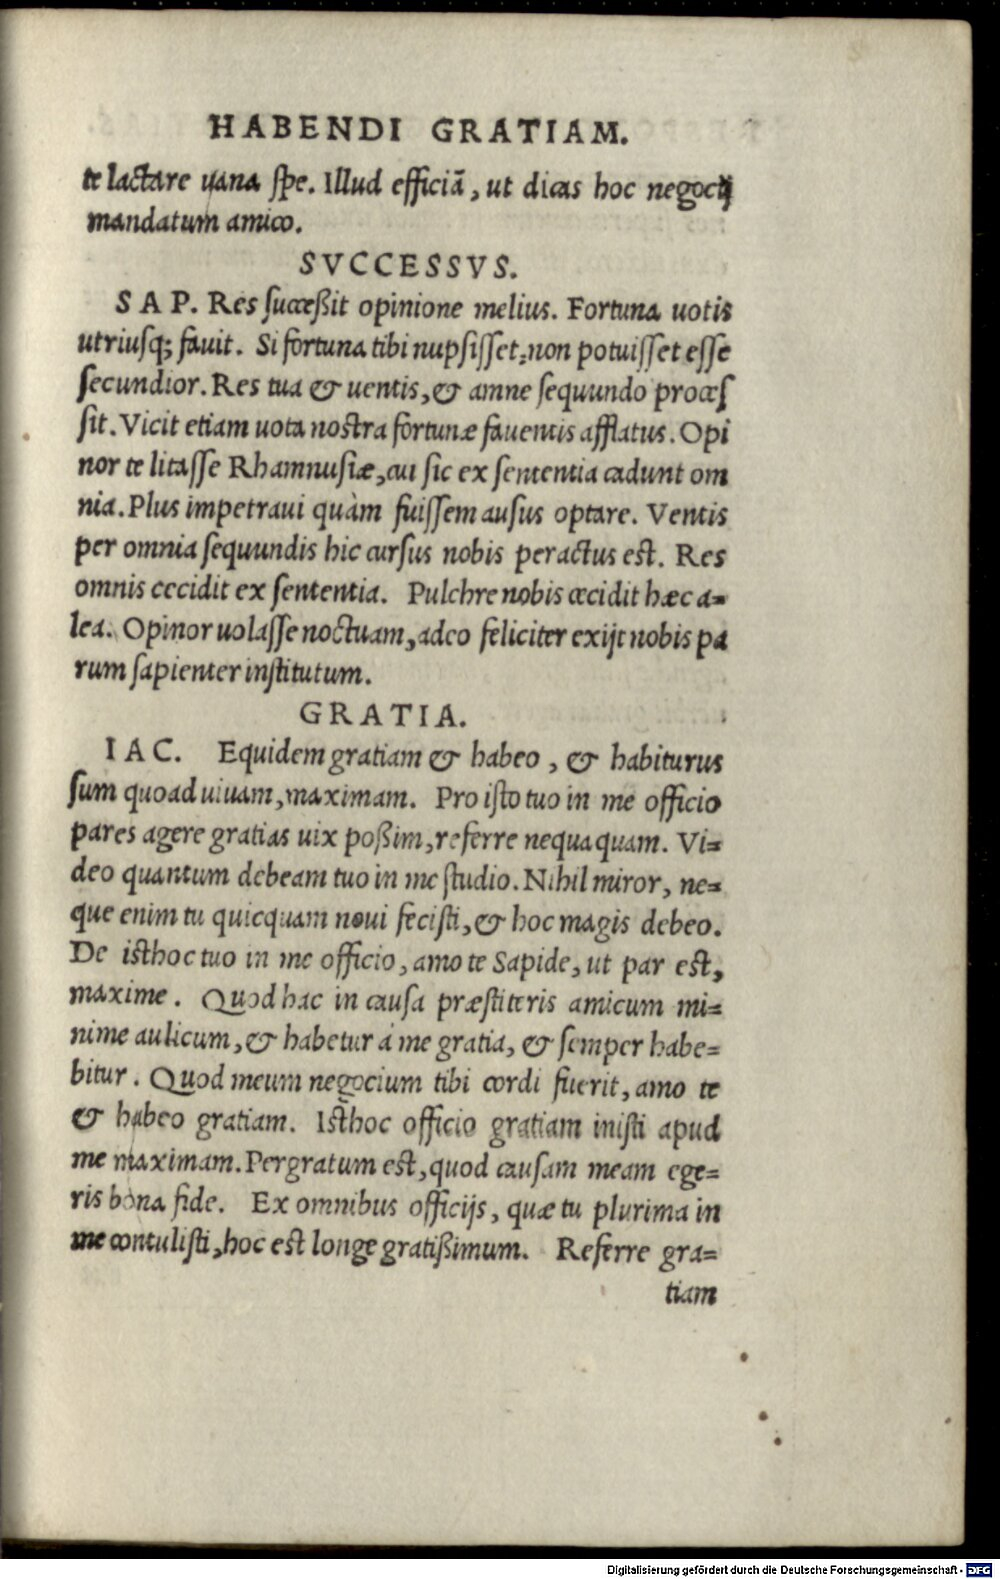 HABENDI GRATIAM.
te lactare uana spe. Illud efficiã, ut dicas hoc negocij
mandatum amico.
SVCCESSVS.
SAP. Res succeßit opinione melius. Fortuna uotis
utriusq; fauit. Si fortuna tibi nupsisset, non potuisset esse
secundior. Res tua & uentis, & amne sequundo proces
sit. Vicit etiam uota nostra fortunæ fauentis afflatus. Opi
nor te litasse Rhamnusiæ, cui sic ex sententia cadunt om
nia. Plus impetraui quàm fuissem ausus optare. Ventis
per omnia sequundis hic cursus nobis peractus est. Res
omnis cecidit ex sententia. Pulchre nobis cecidit hæc a=
lea. Opinor uolasse noctuam, adeo feliciter exijt nobis pa
rum sapienter institutum.
GRATIA.
IAC. Equidem gratiam & habeo, & habiturus
sum quoad uiuam, maximam. Pro isto tuo in me officio
pares agere gratias uix poßim, referre nequaquam. Vi=
deo quantum debeam tuo in me studio. Nihil miror, ne=
que enim tu quicquam noui fecisti, & hoc magis debeo.
De isthoc tuo in me officio, amo te Sapide, ut par est,
maxime. Quod hac in causa præstiteris amicum mi=
nime aulicum, & habetur à me gratia, & semper habe=
bitur. Quod meum negocium tibi cordi fuerit, amo te
& habeo gratiam. Isthoc officio gratiam inisti apud
me maximam. Pergratum est, quod causam meam ege=
ris bona fide. Ex omnibus officijs, quæ tu plurima in
me contulisti, hoc est longe gratißimum. Referre gra=
tiam
Digitalisierung gefördert durch die Deutsche Forschungsgemeinschaft - DFG